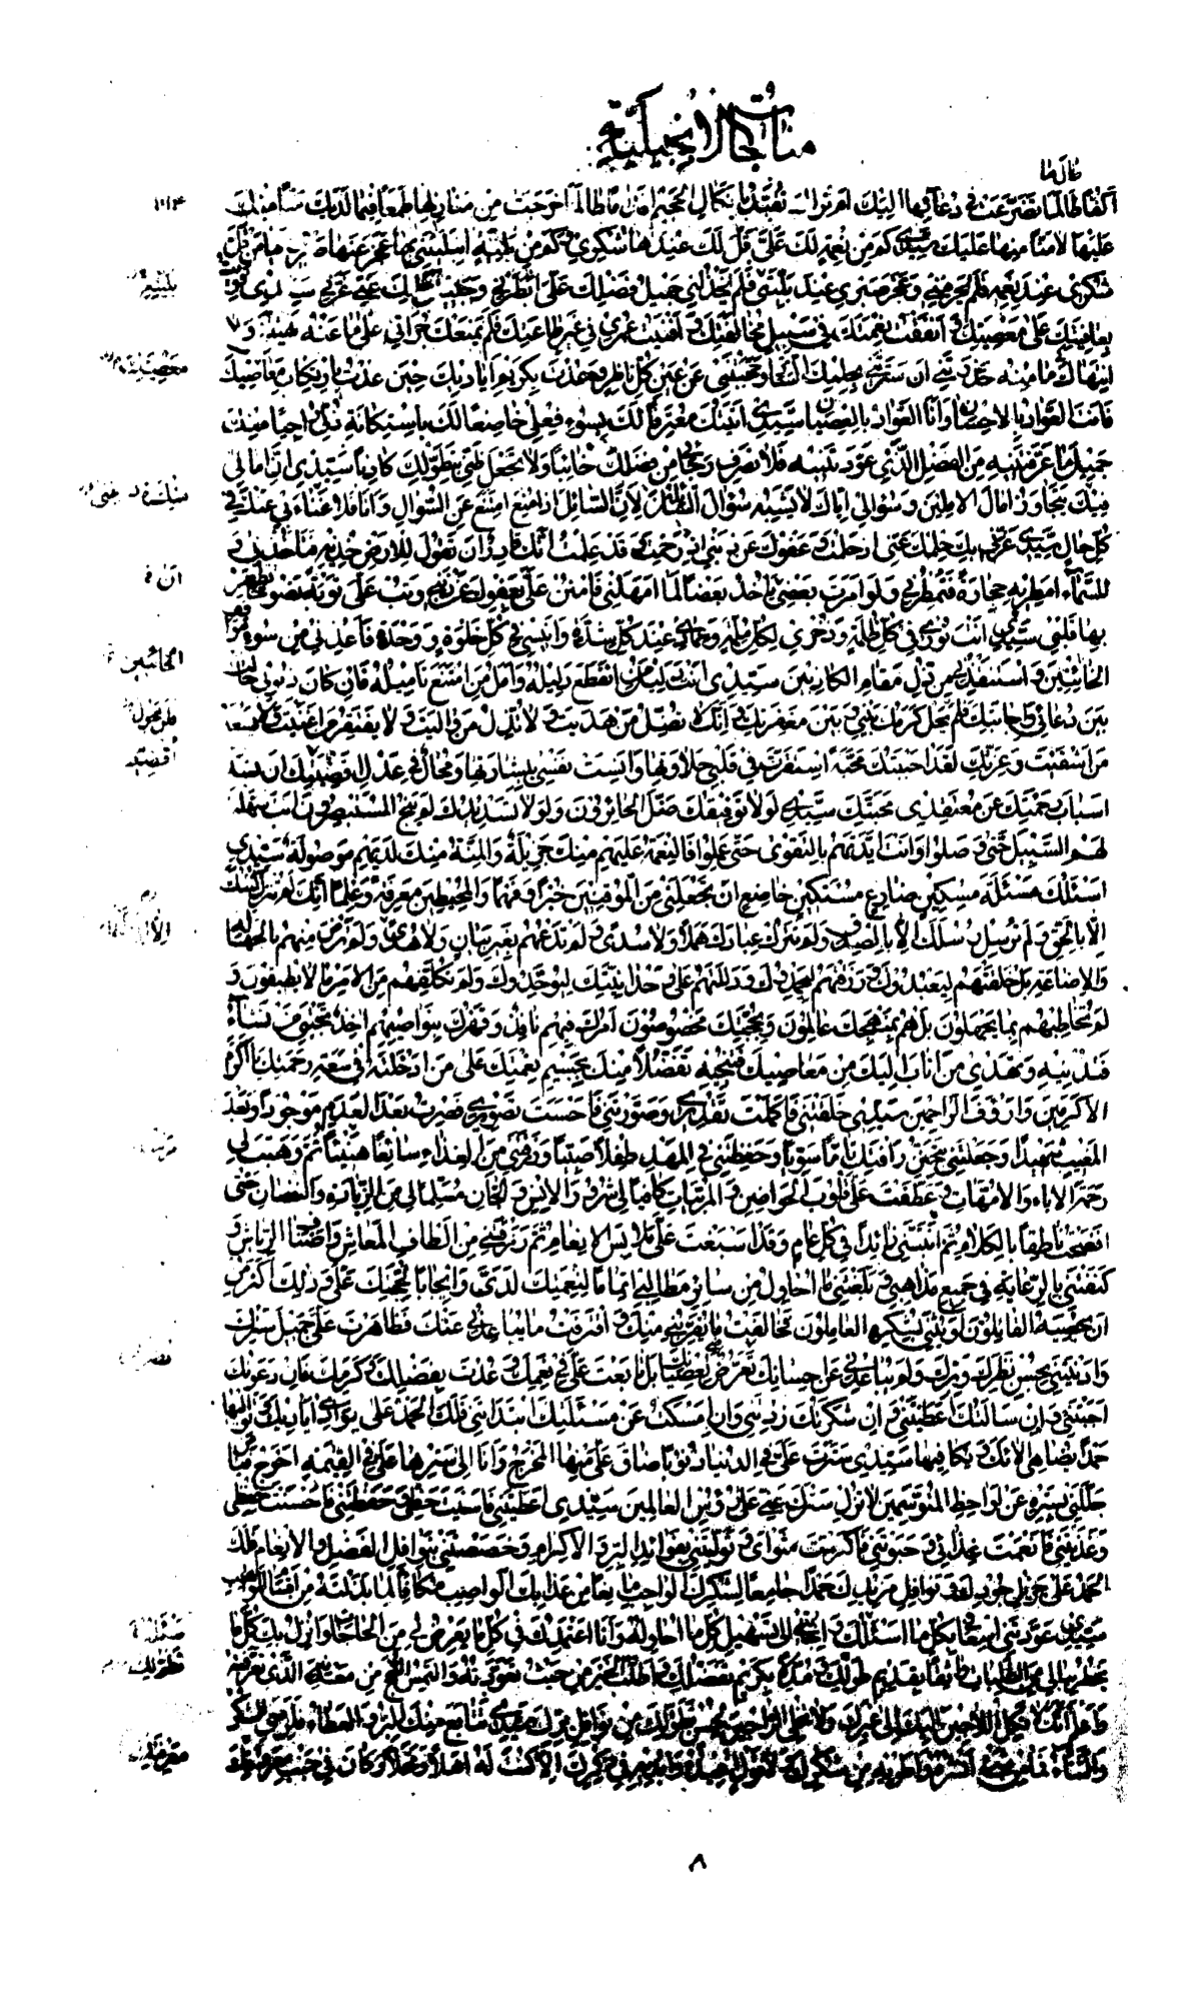 مناجات الانجيلية
طالما
أكفا طالما تضرعت في دعائها اليك
عليها لا منا منها عليك سيدي كم من نعمة لك علي قل لك عندها شكري وكم من بلية ابتليتني بها عجز عنها صبري فيا من قل
شكري عند نعمه فلم يحرمني وعجز صبري عند بليته فلم يخذلني جميل فضلك علي ابطرني وجليل حلمك عني غرني سيدي قويت
بعافيتك على معصيتك وانفقت نعمتك في سبيل مخالفتك وافنيت عمري في غير طاعتك فلم يمنعك جرأتي على ما عنه نهيتني ولا
انتهاكي ما منه حذرتني ان سترتني بحلمك الساتر وحجبتني عن عين كل ناظر وعدت بكريم اياديك حين عدت بارتكاب معاصيك
فانت العواد بالاحسان وانا العواد بالعصيان سيدي اتيتك معترفا لك بسوء فعلي خاضعا لك باستكانة ذلي راجيا منك
جميل ما عرفتنيه من الفضل الذي عودتنيه فلا تصرف رجائي من فضلك خائبا ولا تجعل ظني بتطولك كاذبا سيدي ان آمالي
فيك يتجاوز آمال الآملين وسؤالي اياك لا يشبه سؤال السائلين لان السائل اذا منع امتنع عن السؤال وانا فلا غناء بي عنك في
كل حال سيدي غرني بك حلمك عني اذ حلمت وعفوك عن ذنبي اذ رحمت وقد علمت انك قادر ان تقول للارض خذيه فتأخذني و
للسماء امطريه حجارة فتمطرني ولو امرت بعضي ان يأخذ بعضا لما امهلني فامنن علي بعفوك عن ذنبي وتب علي توبة نصوحا تطهر
بها قلبي سيدي انت نوري في كل ظلمة وذخري لكل ملمة وعمادي عند كل شدة وانيسي في كل خلوة ووحدة فاعذني من سوء مواقف
الخائنين واستنقذني من ذل مقام الكاذبين سيدي انت دليل من انقطع دليله وامل من امتنع تأميله فان كان ذنوبي حالت
بين دعائي واجابتك فلم يحل كرمك بيني وبين مغفرتك وانك لا تضل من هديت ولا تذل من واليت ولا يفتقر من اغنيت ولا يسعد
من اشقيت وعزتك لقد احببتك محبة استقرت في قلبي حلاوتها وانست نفسي ببشارتها ومحال في عدل اقضيتك ان تسد
اسباب رحمتك عن معتقدي محبتك سيدي لولا توفيقك ضل الحائرون ولولا تسديدك لم ينج المستبصرون انت سهلت
لهم السبيل حتى وصلوا وانت ايدتهم بالتقوى حتى عملوا فالنعمة عليهم منك جزيلة والمنة منك لديهم موصولة سيدي
اسئلك مسئلة مسكين ضارع مستكين خاضع ان تجعلني من الموقنين خبرا وفهما والمحيطين معرفة وعلما انك لم تنزل كتبك
الا بالحق ولم ترسل رسلك الا بالصدق ولم تترك عبادك هملا ولا سدى ولم تدعهم بغير بيان ولا هدى ولم ترض منهم بالجهالة
والاضاعة بل خلقتهم ليعبدوك ورزقتهم ليحمدوك ودللتهم على وحدانيتك ليوحدوك ولم تكلفهم من الامر ما لا يطيقون و
لم تخاطبهم بما يجهلون بل هم بمنهجك عالمون وبحجتك مخصوصون امرك فيهم نافذ وقهرك بنواصيهم آخذ تجتبي من تشاء
فتدنيه وتهدي من اناب اليك من معاصيك فتنجيه تفضلا منك بجسيم نعمتك على من ادخلته في سعة رحمتك يا اكرم
الاكرمين وارؤف الراحمين سيدي خلقتني فاكملت تقديري وصورتني فاحسنت تصويري فصرت بعد العدم موجودا وبعد
المغيب شهيدا وجعلتني بتحنن رأفتك تاما سويا وحفظتني في المهد طفلا صبيا ورزقتني من الغذاء سائغا هنيئا ثم وهبت لي
رحمة الآباء والامهات وعطفت علي قلوب الحواضن والمربيات كافيا لي شرور الانس والجان مسلما لي من الزيادة والنقصان حتى
افصحت ناطقا بالكلام ثم انبتني زائدا في كل عام وقد اسبغت علي ملابس الانعام ثم رزقتني من الطاف المعاش واصناف الرياش و
كنفتني بالرعاية في جميع مذاهبي وبلغتني ما احاول من سائر مطالبي اتماما لنعمتك لدي وايجابا لحجتك علي وذلك اكثر من
ان يحصيه القائلون او يثني بشكره العاملون فخالفت ما يقربني منك واقترفت ما يباعدني عنك فظاهرت علي جميل سترك
وادنيتني بحسن نظرك وبرك ولم يباعدني عن احسانك تعرضي لعصيانك بل تابعت علي في نعمك وعدت بفضلك وكرمك فان دعوتك
اجبتني وان سألتك اعطيتني وان شكرتك زدتني وان امسكت عن مسئلتك ابتدأتني فلك الحمد على بوادي اياديك وتواليها
حمدا يضاهي آلائك ويكافيها سيدي سترت علي في الدنيا ذنوبا ضاق علي منها المخرج وانا الى سترها علي في القيمة احوج فيا من
جللني بستره عن لواحظ المتوسمين لا تزل سترك عني على رؤس العالمين سيدي اعطيتني فاسنيت حظي وحفظتني فاحسنت حفظي
وغذيتني فانعمت غذائي وحبوتني فاكرمت مثواي وتوليتني بفوائد البر والاكرام وخصصتني بنوافل الفضل والانعام فلك
الحمد على جزيل جودك ونوافل مزيدك حمدا جامعا لشكرك الواجب مانعا من عذابك الواصب مكافئا لما بذلته من اقسام المواهب
سيدي عودتني اسعافي بكل ما اسئلك واجابتي الى تسهيل كل ما احاوله وانا اعتمدك في كل ما يعرض لي من الحاجات وانزل بك كل ما
يخطر ببالي من الطلبات واثقا بقديم طولك ومدلا بكريم تفضلك واطلب الخير من حيث تعودته والتمس النجح من معدنه الذي تعرفته
واعلم انك لا تكل اللاجين اليك الى غيرك ولا تخلي الراجين لحسن تطولك من نوافل برك سيدي تتابع منك البر والعطاء فلزمني الشكر
والثناء فما من شيء انشره واطويه من شكرك ولا قول اعيده وابديه في ذكرك الا كنت له اهلا ومحلا وكان في جنب معرفتك
بليته
معصيتك
ان
الخائنين
فلم يحل
اقضيتك
تطولك
٨